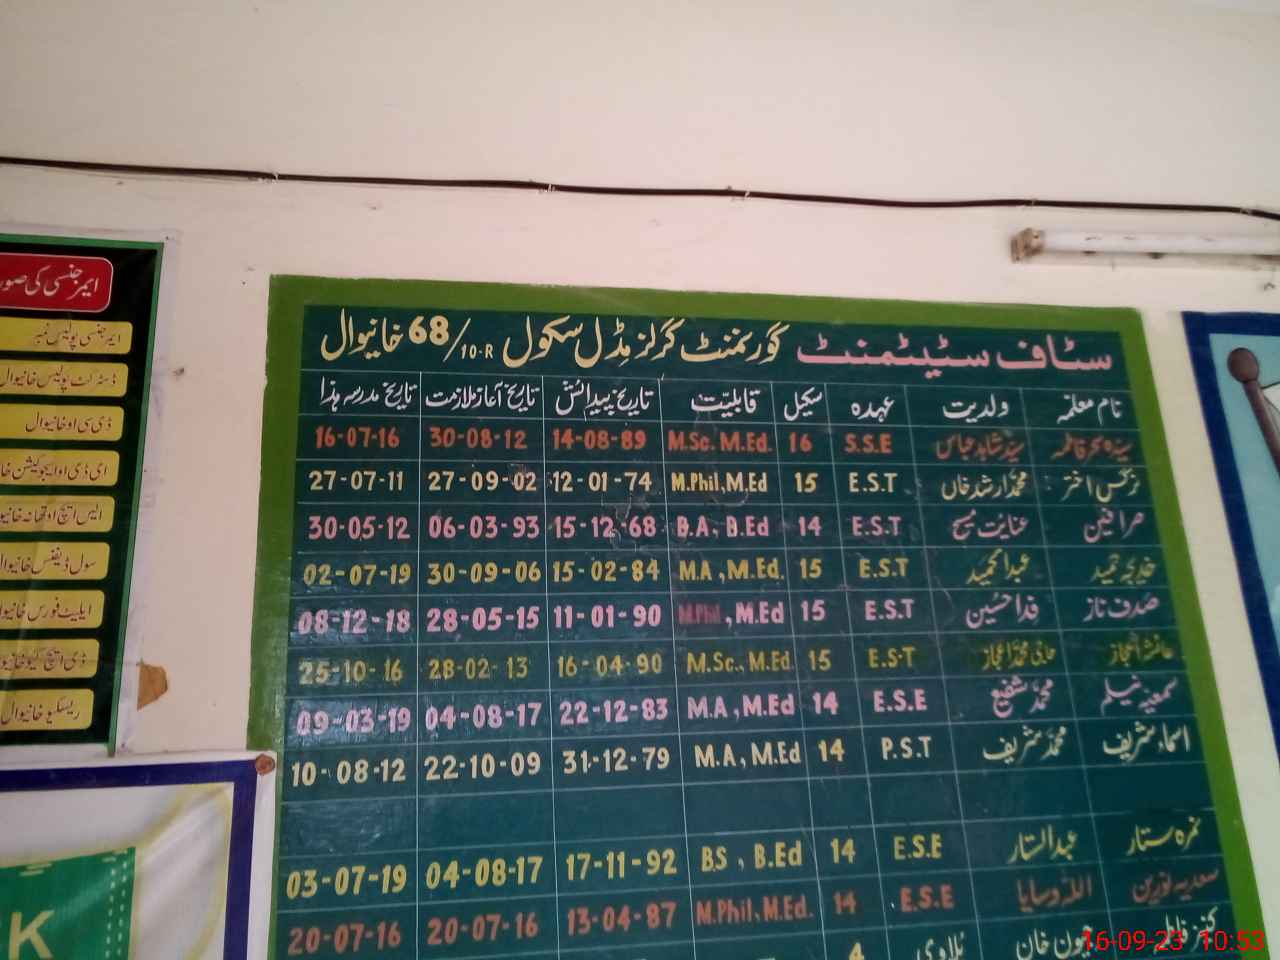 ایمرجنسی کی صور
ایمرجنسی پولیس نمبر
ڈسٹرکٹ پولیس خانیوال
ڈی سی او خانیوال
ای ڈی او ایجوکیشن خا
ایس ایچ او تھانہ خانیو
سول ڈیفنس خانیوال
ایلیٹ فورس خانیوا
ڈی ایچ کیو خانیوا
ریسکیو خانیوال
K
سٹاف سٹیٹمنٹ گورنمنٹ گرلز مڈل سکول 68/10-R خانیوال
نام معلمہ ولدیت عہدہ سکیل قابلیت تاریخ پیدائش تاریخ آغاز ملازمت تاریخ مدرسہ ہذا
سیدہ سحر فاطمہ سید شاہد عباس S.S.E 16 M.Sc. M.Ed. 14-08-89 30-08-12 16-07-16
نرگس اختر محمد ارشد خاں E.S.T 15 M.Phil, M.Ed 12-01-74 27-09-02 27-07-11
عنایت مسیح E.S.T 14 B.A, B.Ed 15-12-68 06-03-93 30-05-12
خدیجہ حمید عبدالحمید E.S.T 15 M.A, M.Ed. 15-02-84 30-09-06 02-07-19
صدف ناز فدا حسین E.S.T 15 M.Phil, M.Ed 11-01-90 28-05-15 08-12-18
عائشہ اعجاز حاجی محمد اعجاز E.S.T 15 M.Sc., M.Ed. 16-04-90 28-02-13 25-10-16
سمیعہ نیلم محمد شفیع E.S.E 14 M.A, M.Ed 22-12-83 04-08-17 09-03-19
اسماء شریف محمد شریف P.S.T 14 M.A, M.Ed 31-12-79 22-10-09 10-08-12
نمرہ ستار عبدالستار E.S.E 14 BS, B.Ed 17-11-92 04-08-17 03-07-19
سعدیہ نورین اللہ وسایا E.S.E 14 M.Phil, M.Ed. 13-04-87 20-07-16 20-07-16
ون خان 4
16-09-23 10:53